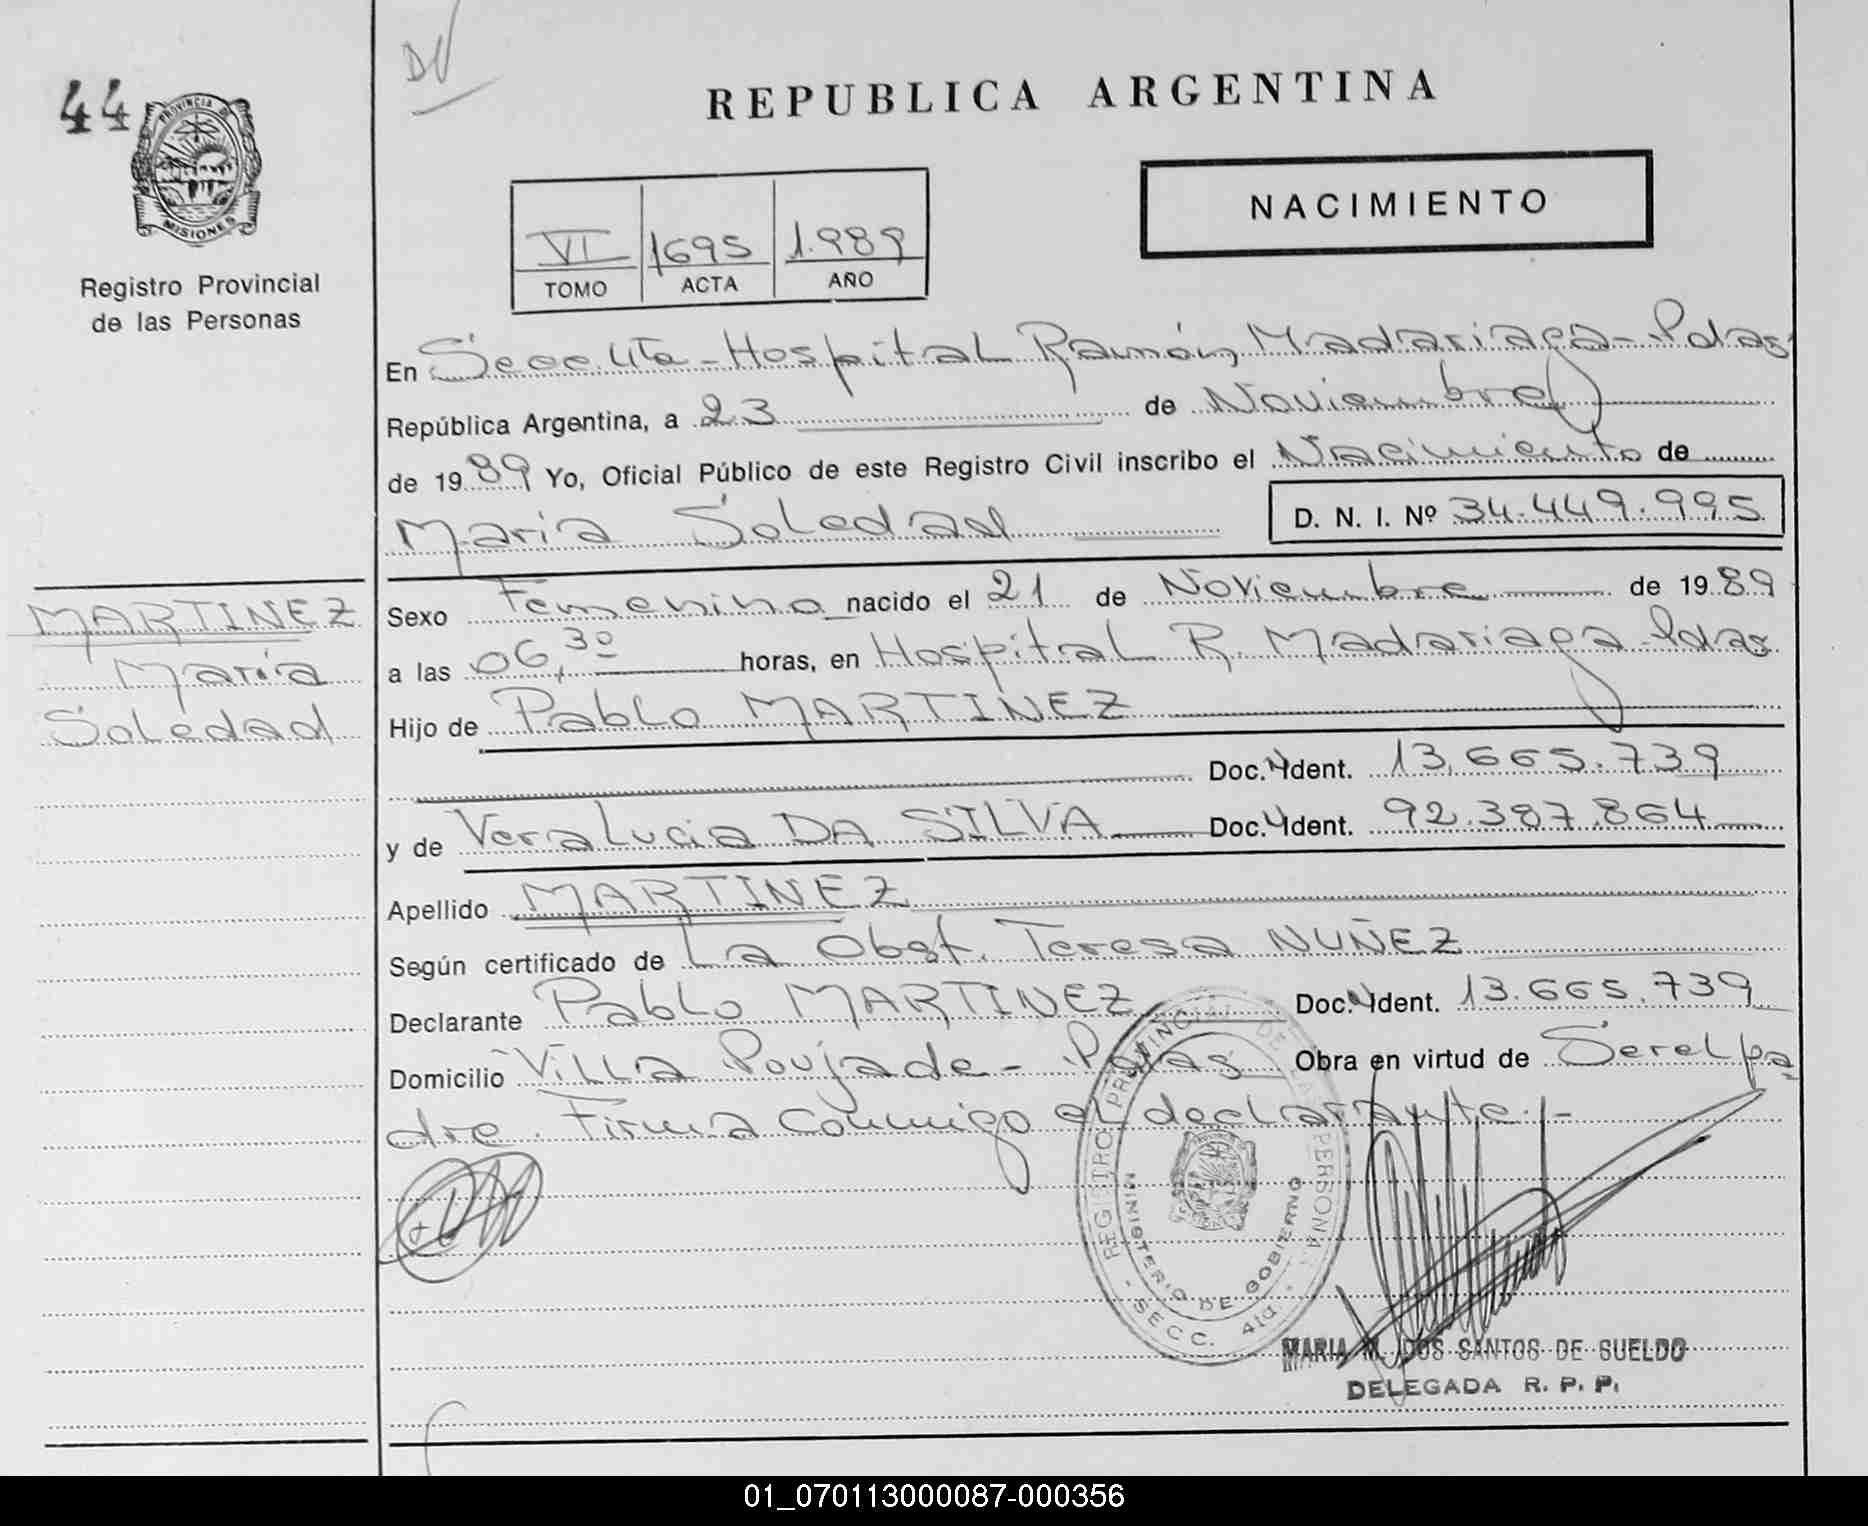 DV
44
PROVINCIA DE
MISIONES
Registro Provincial
de las Personas
REPUBLICA ARGENTINA
VI 1695 1.989
TOMO ACTA AÑO
NACIMIENTO
En Secc. 4ta - Hospital Ramón Madariaga - Pdas
República Argentina, a 23 de Noviembre
de 1989 Yo, Oficial Público de este Registro Civil inscribo el Nacimiento de
Maria Soledad D. N. I. Nº 34.449.995
MARTINEZ
María
Soledad
Sexo Femenino nacido el 21 de Noviembre de 1989
a las 06,30 horas, en Hospital R. Madariaga - Pdas
Hijo de Pablo MARTINEZ
Doc. Ident. 13.665.739
y de Vera Lucia DA SILVA Doc. Ident. 92.387.864
Apellido MARTINEZ
Según certificado de La Obst. Teresa NUÑEZ
Declarante Pablo MARTINEZ Doc. Ident. 13.665.739
Domicilio Villa Poujade - Pdas Obra en virtud de Ser el pa
dre. Firma conmigo el declarante.-
REGISTRO PROVINCIAL DE LAS PERSONAS
MINISTERIO DE GOBIERNO
SECC. 4ta
MARIA M. DOS SANTOS DE SUELDO
DELEGADA R. P. P.
01_070113000087-000356